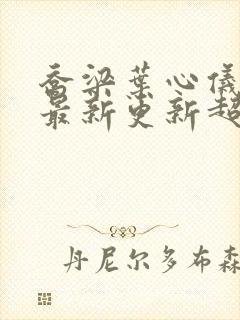 乔梁叶心仪
最新更新超
丹尼尔多布森